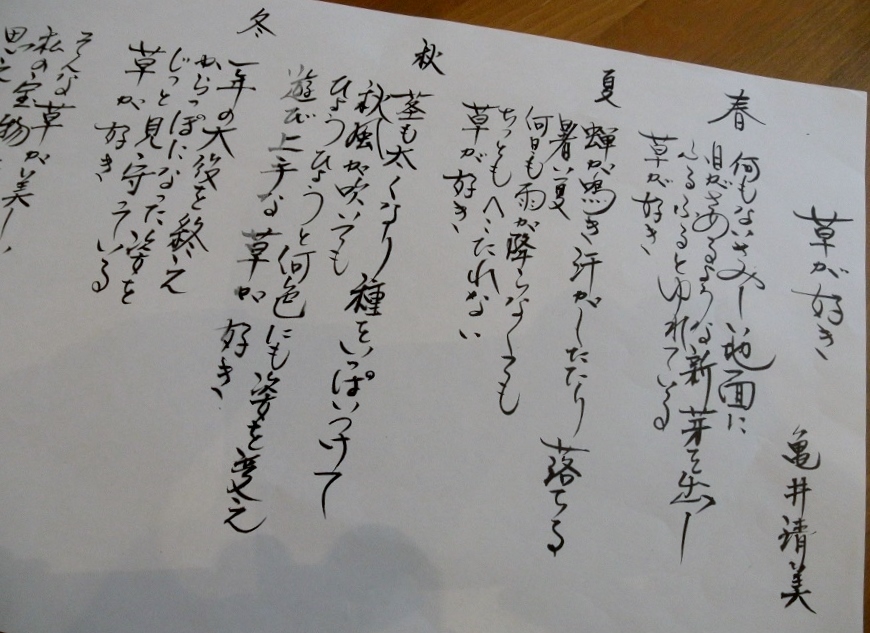 草が好き
亀井清美
春
何もないさみしい地面に
目がさめるような新芽を出し
ふるふるとゆれている
草が好き
夏
蝉が鳴き汗がしたたり落てる
暑い夏
何日も雨が降らなくても
ちっともへこたれない
草が好き
秋
茎も太くなり種をいっぱいつけて
秋風が吹いても
ひょうひょうと何色にも姿を変え
遊び上手な草が好き
冬
一年の大役を終え
からっぽになった姿を
じっと見守っている
草が好き
そんな草が美し
私の宝物
思え